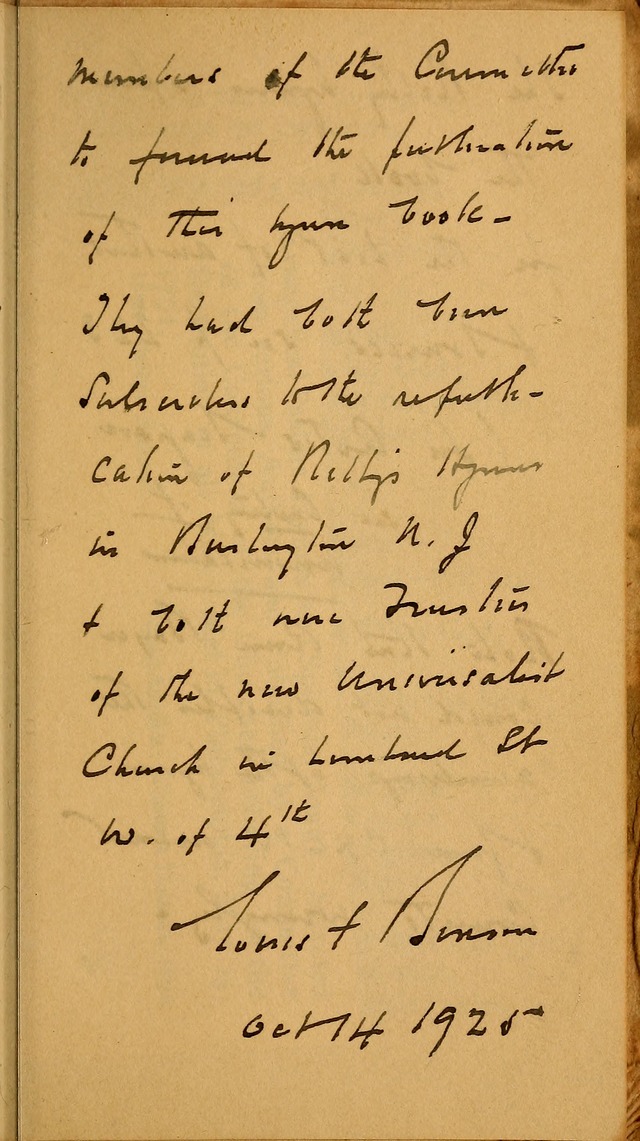 members of the Committee
to forward the publication
of this hymn book -
They had both been
Subscribers to the republi-
cation of Relly's Hymns
in Burlington N. J
+ both were Trustees
of the new Universalist
Church in Lombard St
W. of 4th
Louis F Benson
Oct 14 1925